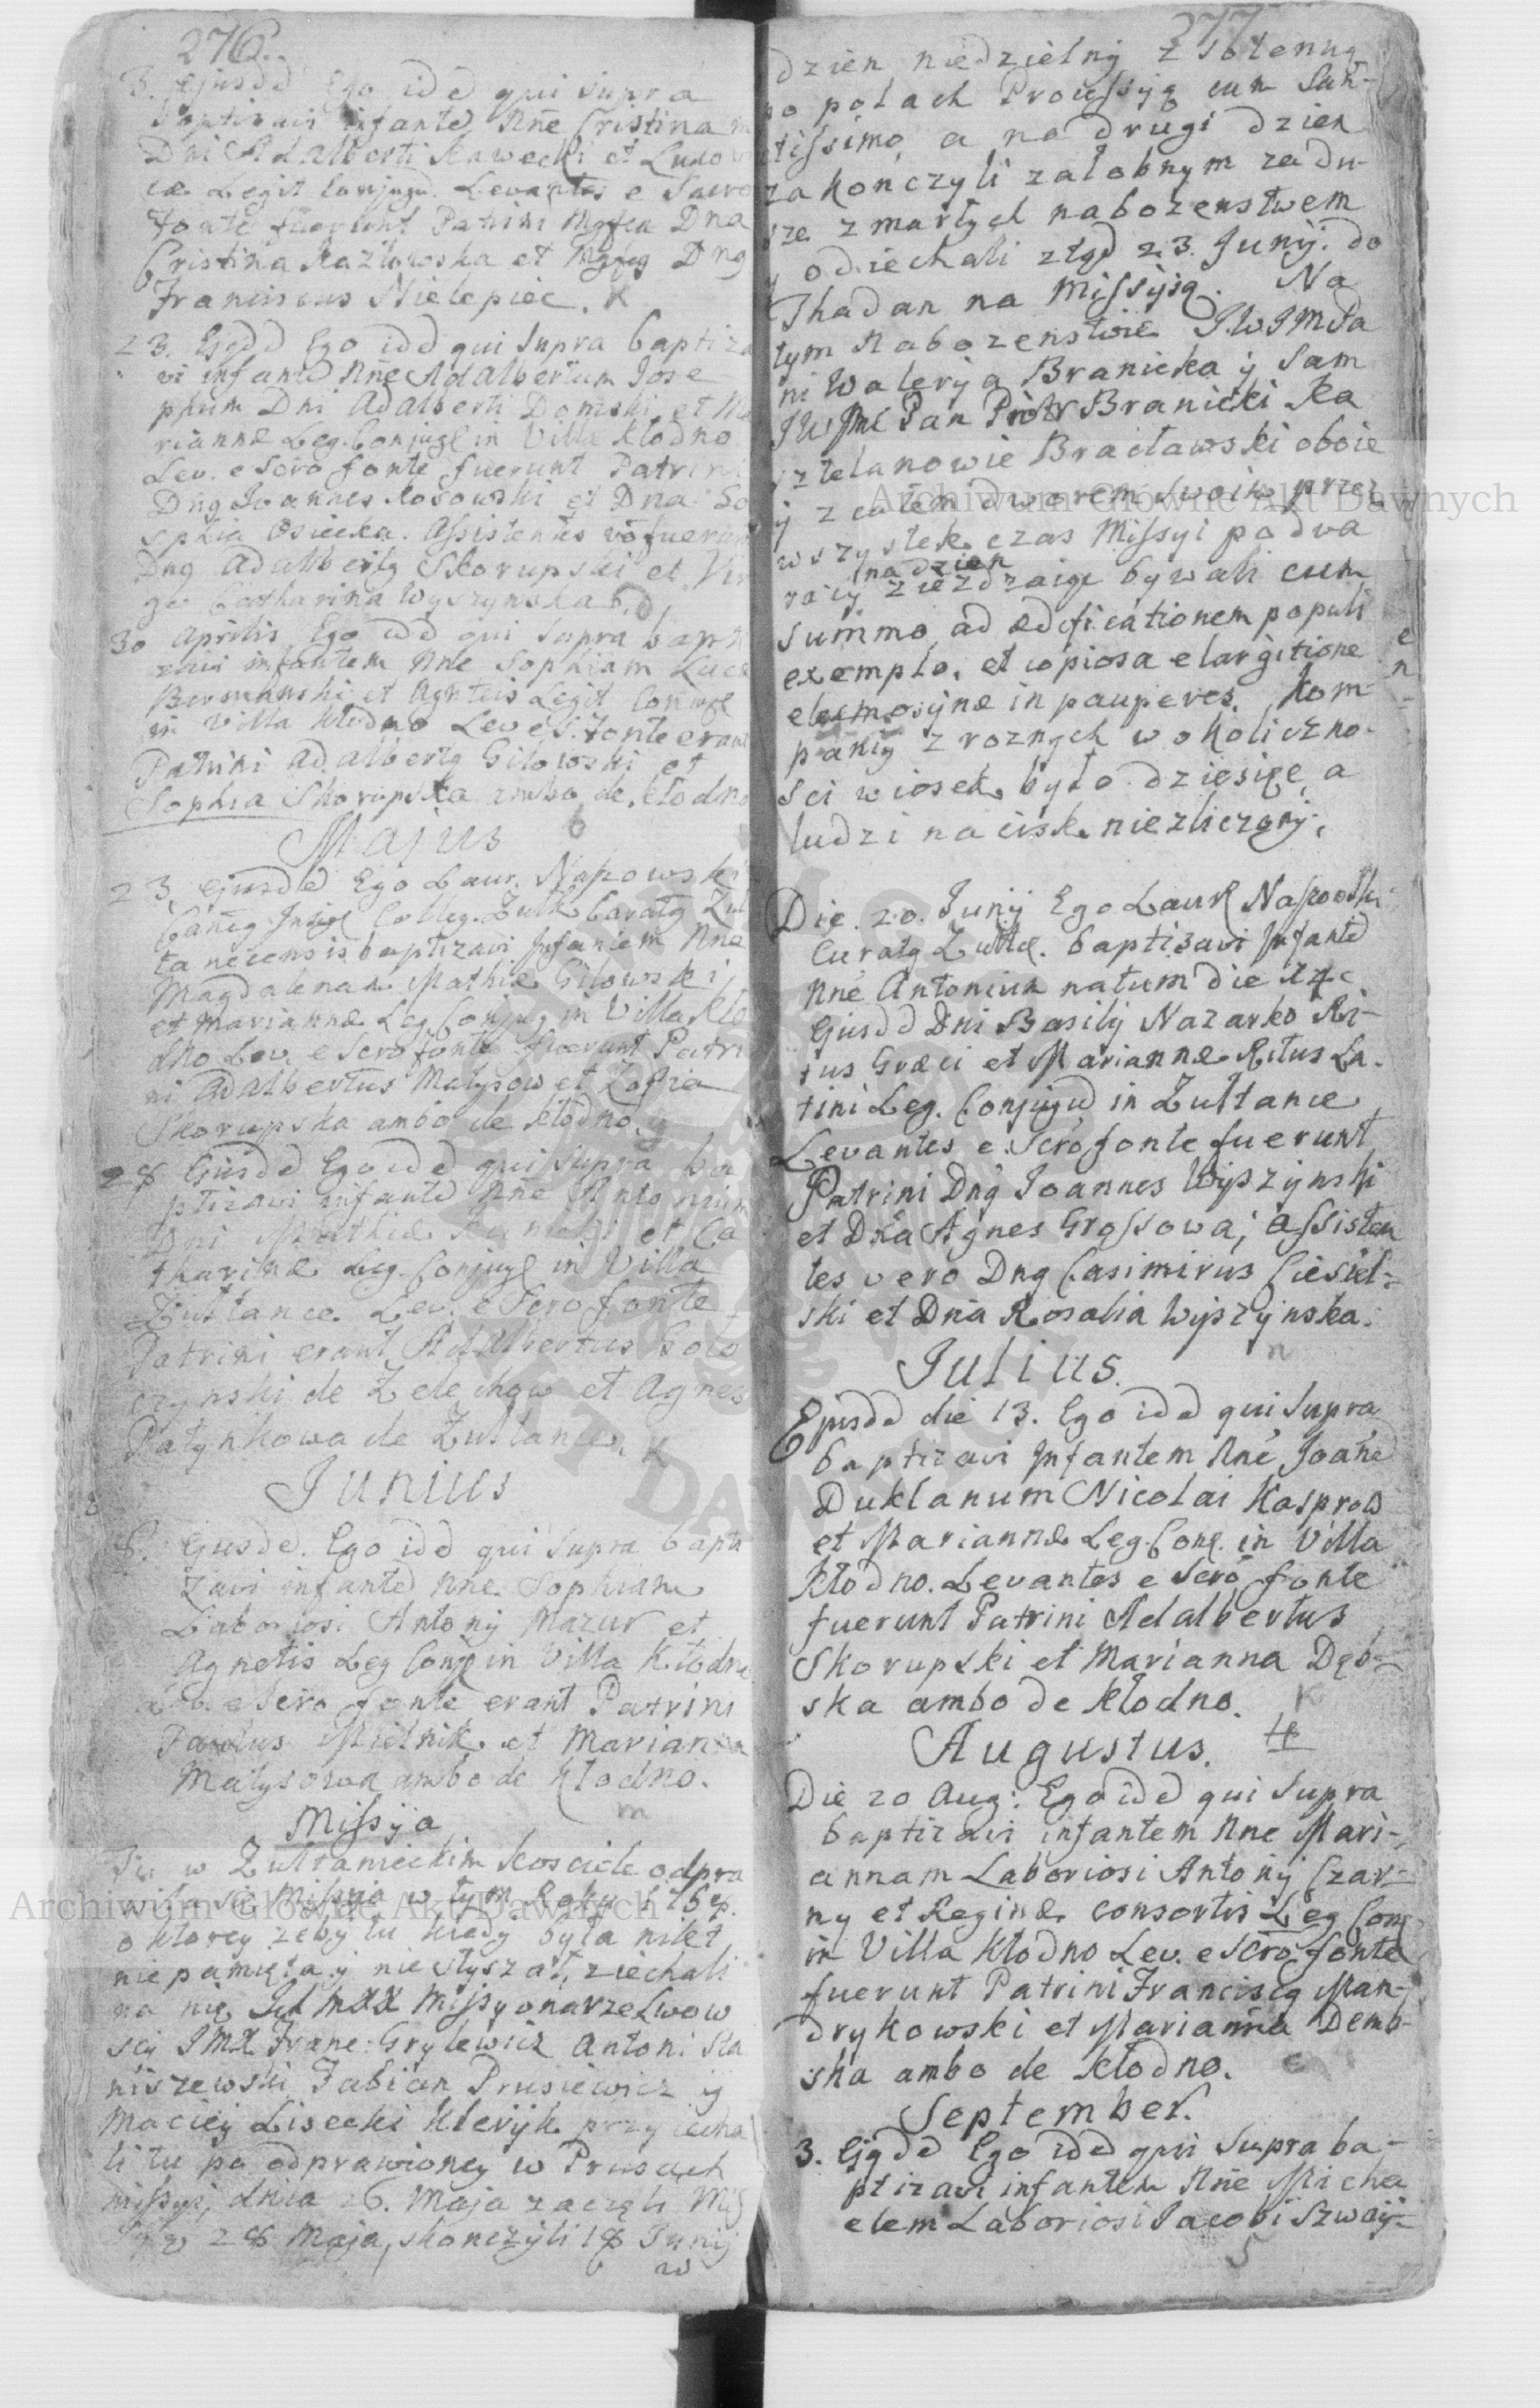 276.
3. ejusdd Ego idd qui supra
baptizavi infantd Nne Cristina m
Dni Adalberti Kawecki et Ludovi
cæ Legit Conjugu. Levantes e Sacro
fonte fuerunt Patrini Mgfca Dna
Cristina Kazłowska et Mgfcg Dng
Franciscus Nielepiec. K
23. Ejsdd Ego idd qui supra baptiza
vi infantd Nne Adalbertum Jose
phum Dni Adalberti Domski et Ma
riannæ Leg. Conjugē in Villa Kłodno
Lev. e Scro fonte fuerunt Patrini
Dng Joannes Kosowski et Dna So
sphia Osiecka. Assistentes vo fuerunt
Dng Adalbertg Skorupski et Vir
go Catharina Wyszynska
30 Aprilis Ego idd qui supra bapti
zavi infantem Nne Sophiam Lucæ
et Agnetis Legit Conjugē
in Villa Kłodno Lev e S. fonte erant
Patrini Adalbertg Gilowski et
Sophia Skorupska ambo de Kłodno
Majus
23. ejusdd Ego Laur. Napowski
Colleg. Curatg Zul
tanecensis baptizavi Infantem Nne
Magdalenam Mathiæ Gilowski
et Mariannæ Leg Conjug in Villa Kło
dno Lev. e Scro fonte fuerunt Patri
ni Adalbertus Matysow et Zofia
Skorupska ambo de Kłodno.
28 Ejusdd Ego idd qui supra ba
ptizavi infantd Nne Antonium
Dni Mathiæ et Ca
tharinæ Leg. Conjugē in Villa
Żułtance. Lev. e Scro fonte
Patrini erant Adalbertus Goło
czynski de Żelechow et Agnes
Patynkowa de Żułtance. K
Junius
8. Ejusdd. Ego idd qui supra bapti
zavi infantd Nne Sophiam
Laboriosi Antonij Mazur et
Agnetis Leg Conjē in Villa Kłodno
Lev. e Scro fonte erant Patrini
Paulus Mielnik et Marianna
Matysowa ambo de Kłodno.
m
Missyja
Tu w Żułtanieckim Kosciele odpra
wiła się Missyja w tym Roku 176
o ktorey żeby tu kiedy była nikt
nie pamięta y nie słyszał, ziechali
na nię Missyonarze Lwow
scy Franc: Grylewicz Antoni Sta
niszewski Fabian Prusiewicz y
Maciey Lisecki Kleryk przyiecha
li tu po odprawioney w Prusach
missyi, dnia 26. Maja zaczęli Mis
syę 28 Maja, skonczyli 18 Junij
w
277
dzien niedzielny z solenną
po polach Processyą cum San-
ctissimo, a na drugi dzien
zakończyli załobnym za du-
sze zmarłych nabozenstwem
y odiechali ztąd 23. Junij. do
Thadan na Missyją. Na
tym Nabozenstwie JWJMPa
ni Waleryja Branicka y sam
JWJMć Pan Piotr Branicki Ka
sztelanowie Bracławski oboie
y z całem dworem swoim przez
wszystek czas Missyi po dwa
na dzien
razy zieżdzaiąc bywali cum
summo ad ædificationem populi
exemplo, et copiosa elargitione
eleemosynæ in pauperes. Kom
panij z roznych w okoliczno-
sci wiosek było dziesięc, a
ludzi nacisk niezliczony.
Die. 20. Junij Ego Laur Napowski
Curatg Zultce. baptizavi Infantd
Nne Antonium natum die 14
Ejusdd Dni Basilij Nazarko Ri-
tus Græci et Mariannæ Ritus La-
tini Leg. Conjugu in Zultance
Levantes e Scro fonte fuerunt
Patrini Dng Joannes Wyszynski
et Dna Agnes Grossowa; Assisten
tes vero Dng Casimirus Ciesiel-
ski et Dna Rosalia Wyszynska.
n
Julius.
Ejusdd die 13. Ego idd qui supra
baptizavi Infantem Nne Joañe
Duklanum Nicolai Kasprow
et Mariannæ Leg. Conj. in Villa
Kłodno. Levantes e Scro fonte
fuerunt Patrini Adalbertus
Skorupski et Marianna Dęb-
ska ambo de Kłodno. K
Augustus.
Die 20 Aug: Ego idd qui supra
baptizavi infantem Nne Mari-
annam Laboriosi Antonij Czar-
ny et Reginæ consortis Leg Conj
in Villa Kłodno Lev. e Scro fonte
fuerunt Patrini Franciscg Man-
drykowski et Marianna Demb-
ska ambo de Kłodno.
September.
3. Ejgdd Ego idd qui supra ba-
ptizavi infantem Nne Micha
elem Laboriosi Jacobi Szway-
Archiwum Główne Akt Dawnych
Archiwum Główne Akt Dawnych